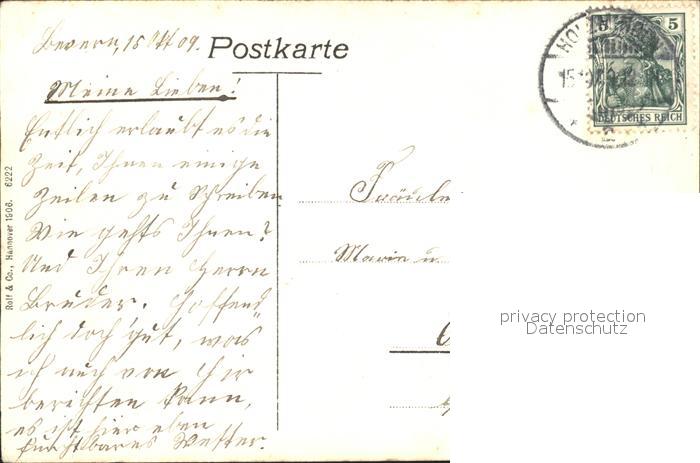 Bevern, 15 Okt 09.
Postkarte
Meine Lieben!
Entlich erlaubt es die
Zeit, Ihnen einige
Zeilen zu schreiben
Wie gehts Ihnen?
Und Ihren Herrn
Bruder. Hoffend„
lich doch gut, was
ich auch von hir
berichten kann,
es ist hier eben
furchtbares Wetter.
Rolf & Co., Hannover 1906. 6222
5 5
DEUTSCHES REICH
Fräule
Marie u
privacy protection
Datenschutz